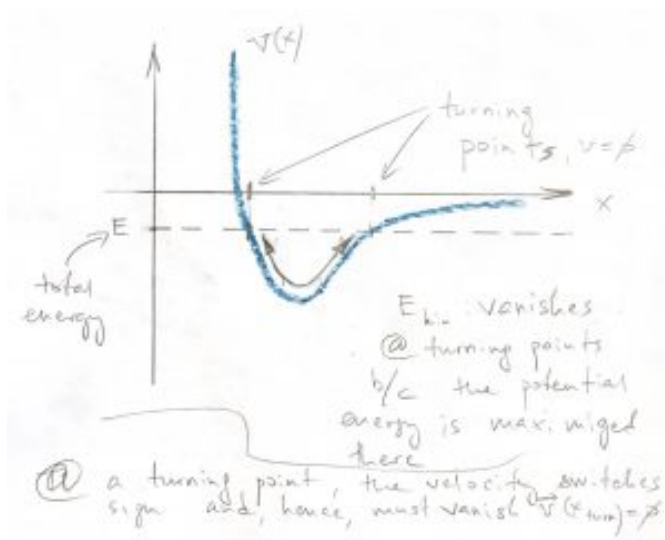 V(x)
turning
points, v=ø
x
E
total
energy
E kin vanishes
@ turning points
b/c the potential
energy is maximized
there
@ a turning point, the velocity switches
sign and, hence, must vanish v(x turn)=ø